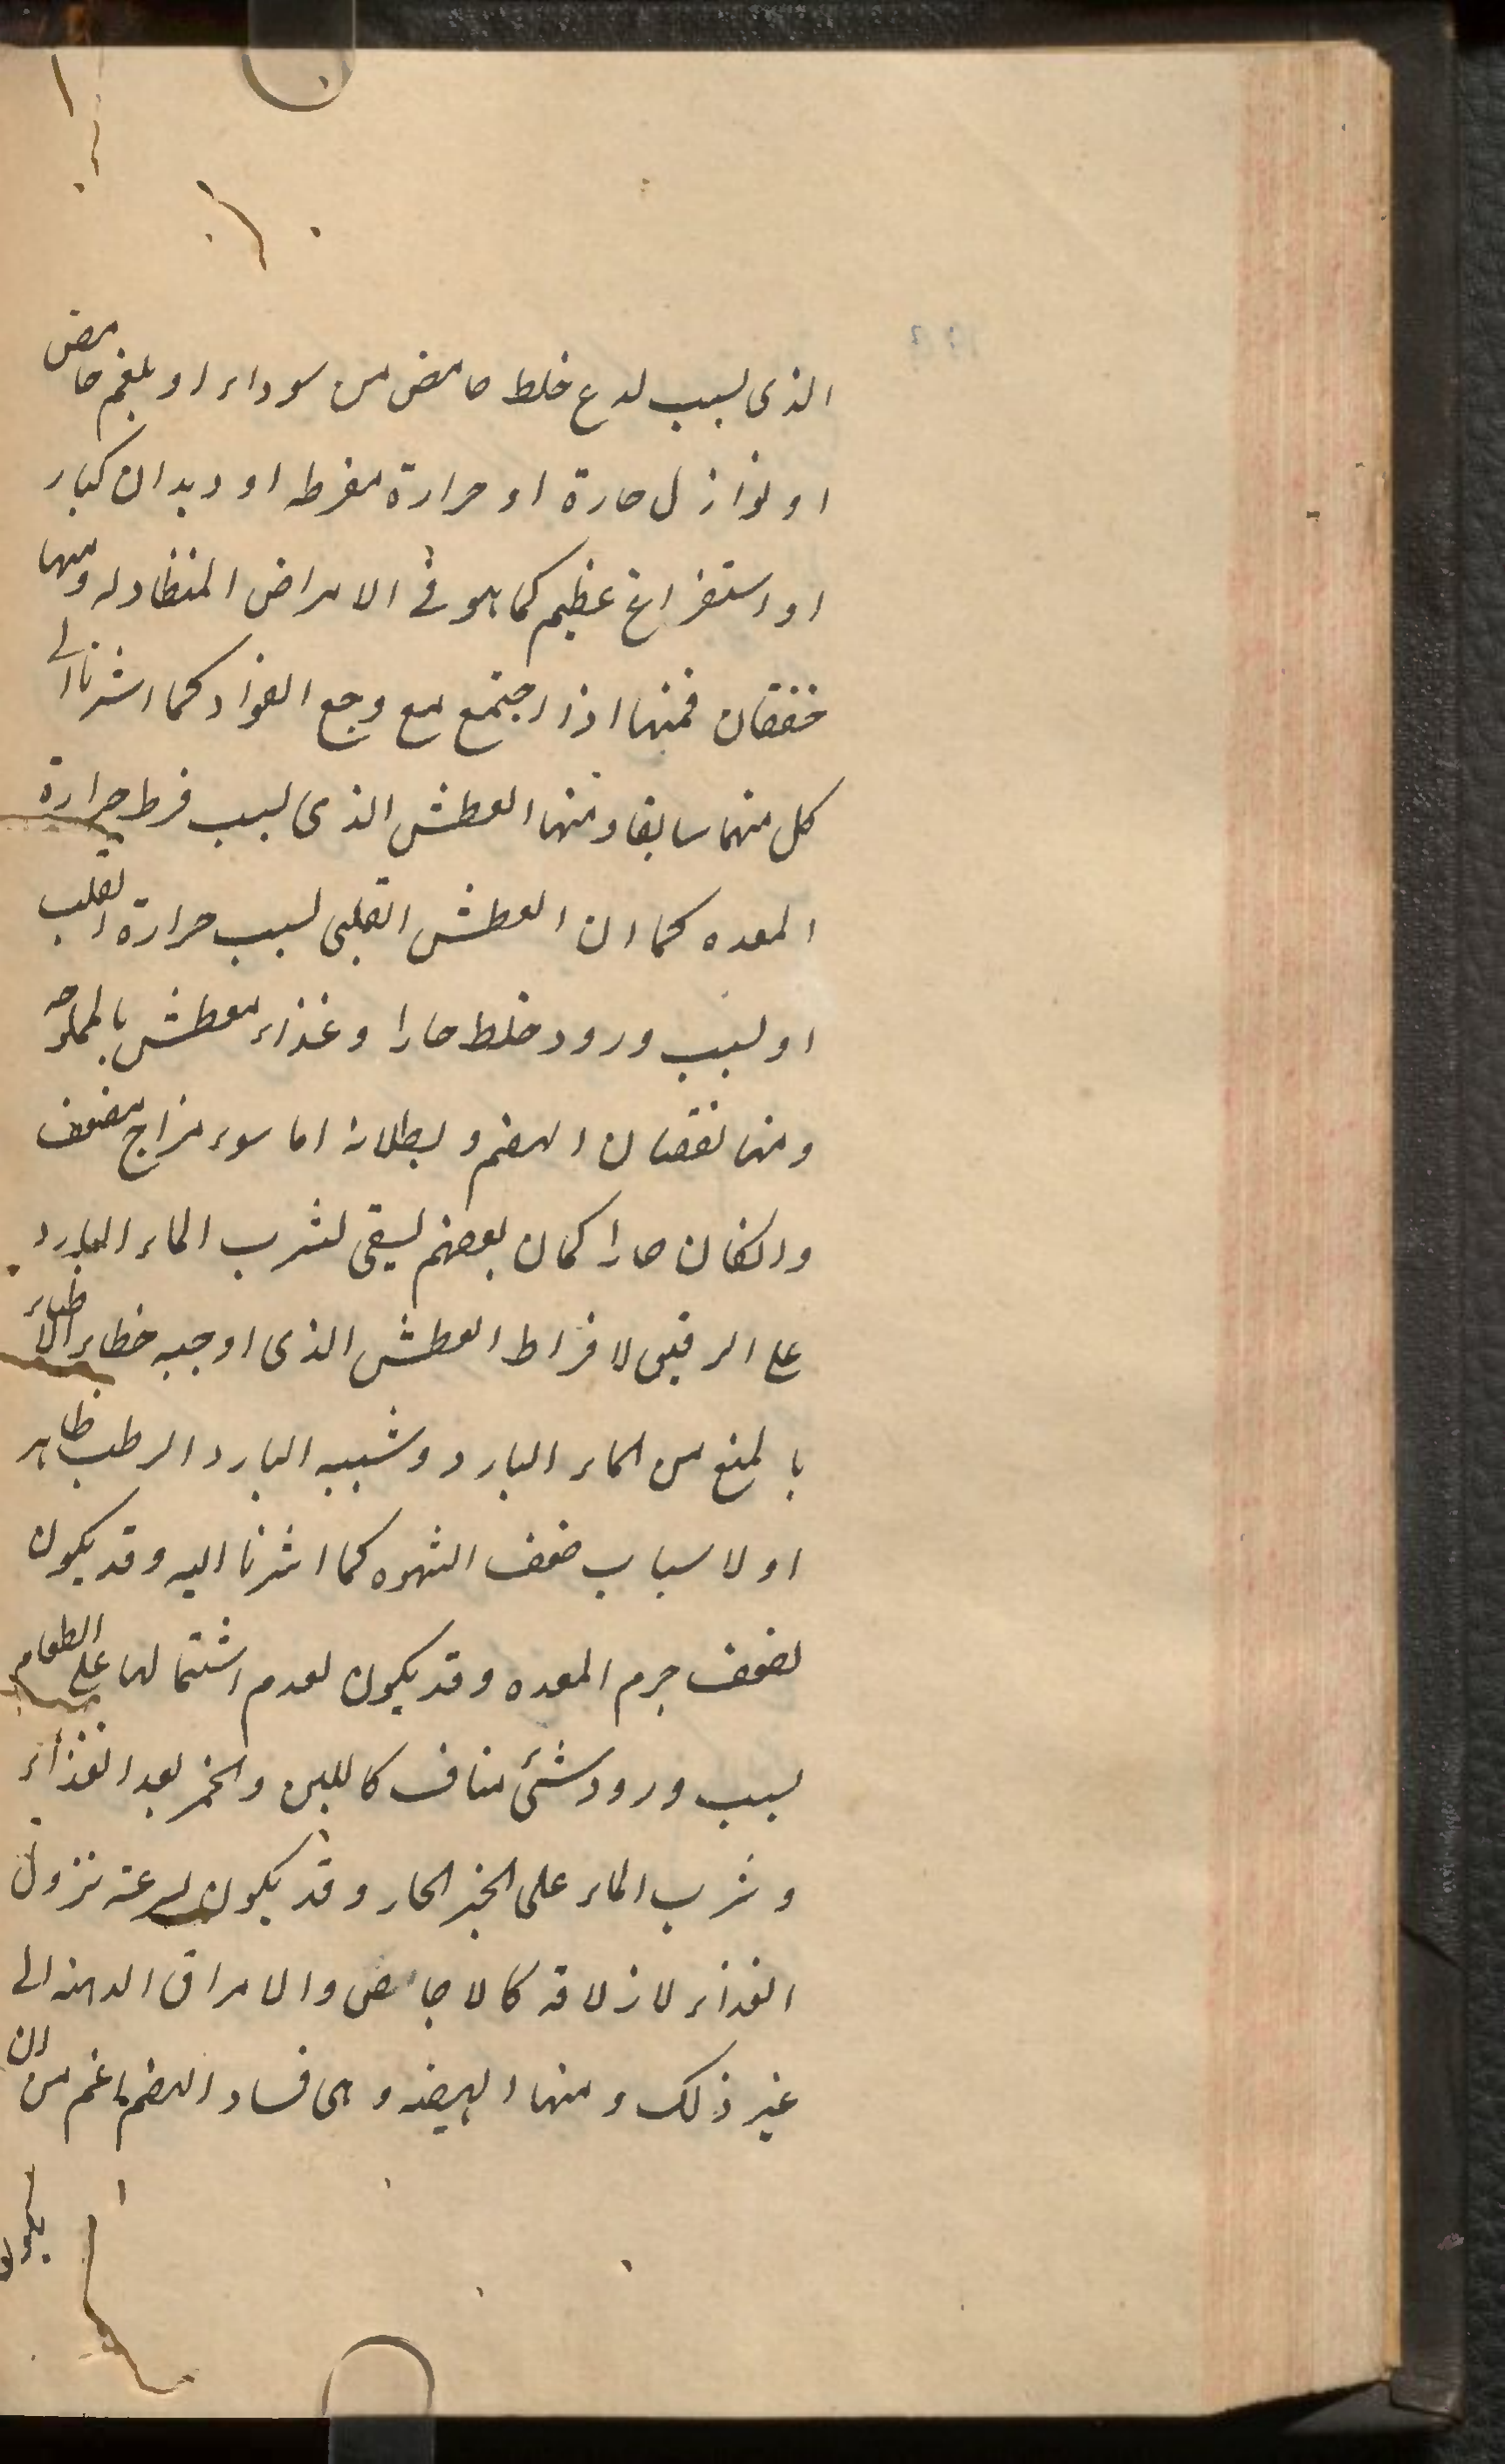 الذى لسبب لدع خلط حامض من سوداء او بلغم حامض
او نوازل حارة او حرارة مفرطه او ديدان كبار
او استفراغ عظيم كما هو فى الامراض المتطاوله ومنها
خفقان فمنها اذا اجتمع مع وجع الفواد كما اشرنا الى
كل منهما سابقا ومنها العطش الذى لسبب فرط حرارة
المعده كما ان العطش القلبى لسبب حرارة القلب
او لسبب ورود خلط حارا وغذاء معطش بالملوحه
ومنها نقصان الهضم وبطلانه اما سوء مزاج مضعف
وانكان حارا كمان بعضهم يسقى لشرب الماء البارد
على الريق لافراط العطش الذى اوجبه خطاء الاطباء
بالمنع من الماء البارد وشبيه البارد الرطب ظاهر
او لاسباب ضعف الشهوه كما اشرنا اليه وقد يكون
لضعف جرم المعده وقد يكون لعدم اشتمالها على الطعام
لسبب ورود شئ مناف كاللبن والخمر بعد الغذاء
وشرب الماء على الخبز الحار وقد يكون لسرعة نزول
الغذاء لازلاقه كالاجاص والامراق الدهنه الى
غير ذلك ومنها الهيضه وهى فساد الهضم اعم من ان
يكون